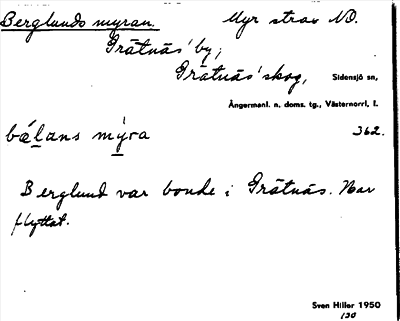 Berglunds myran. Myr strax NO.
Grätnäs' by,
Grätnäs' skog, Sidensjö sn,
Ångermanl. n. doms. tg., Västernorrl. l.
bælans mýra 362.
Berglund var bonde i Grätnäs. Har
flyttat.
Sven Hiller 1950
130